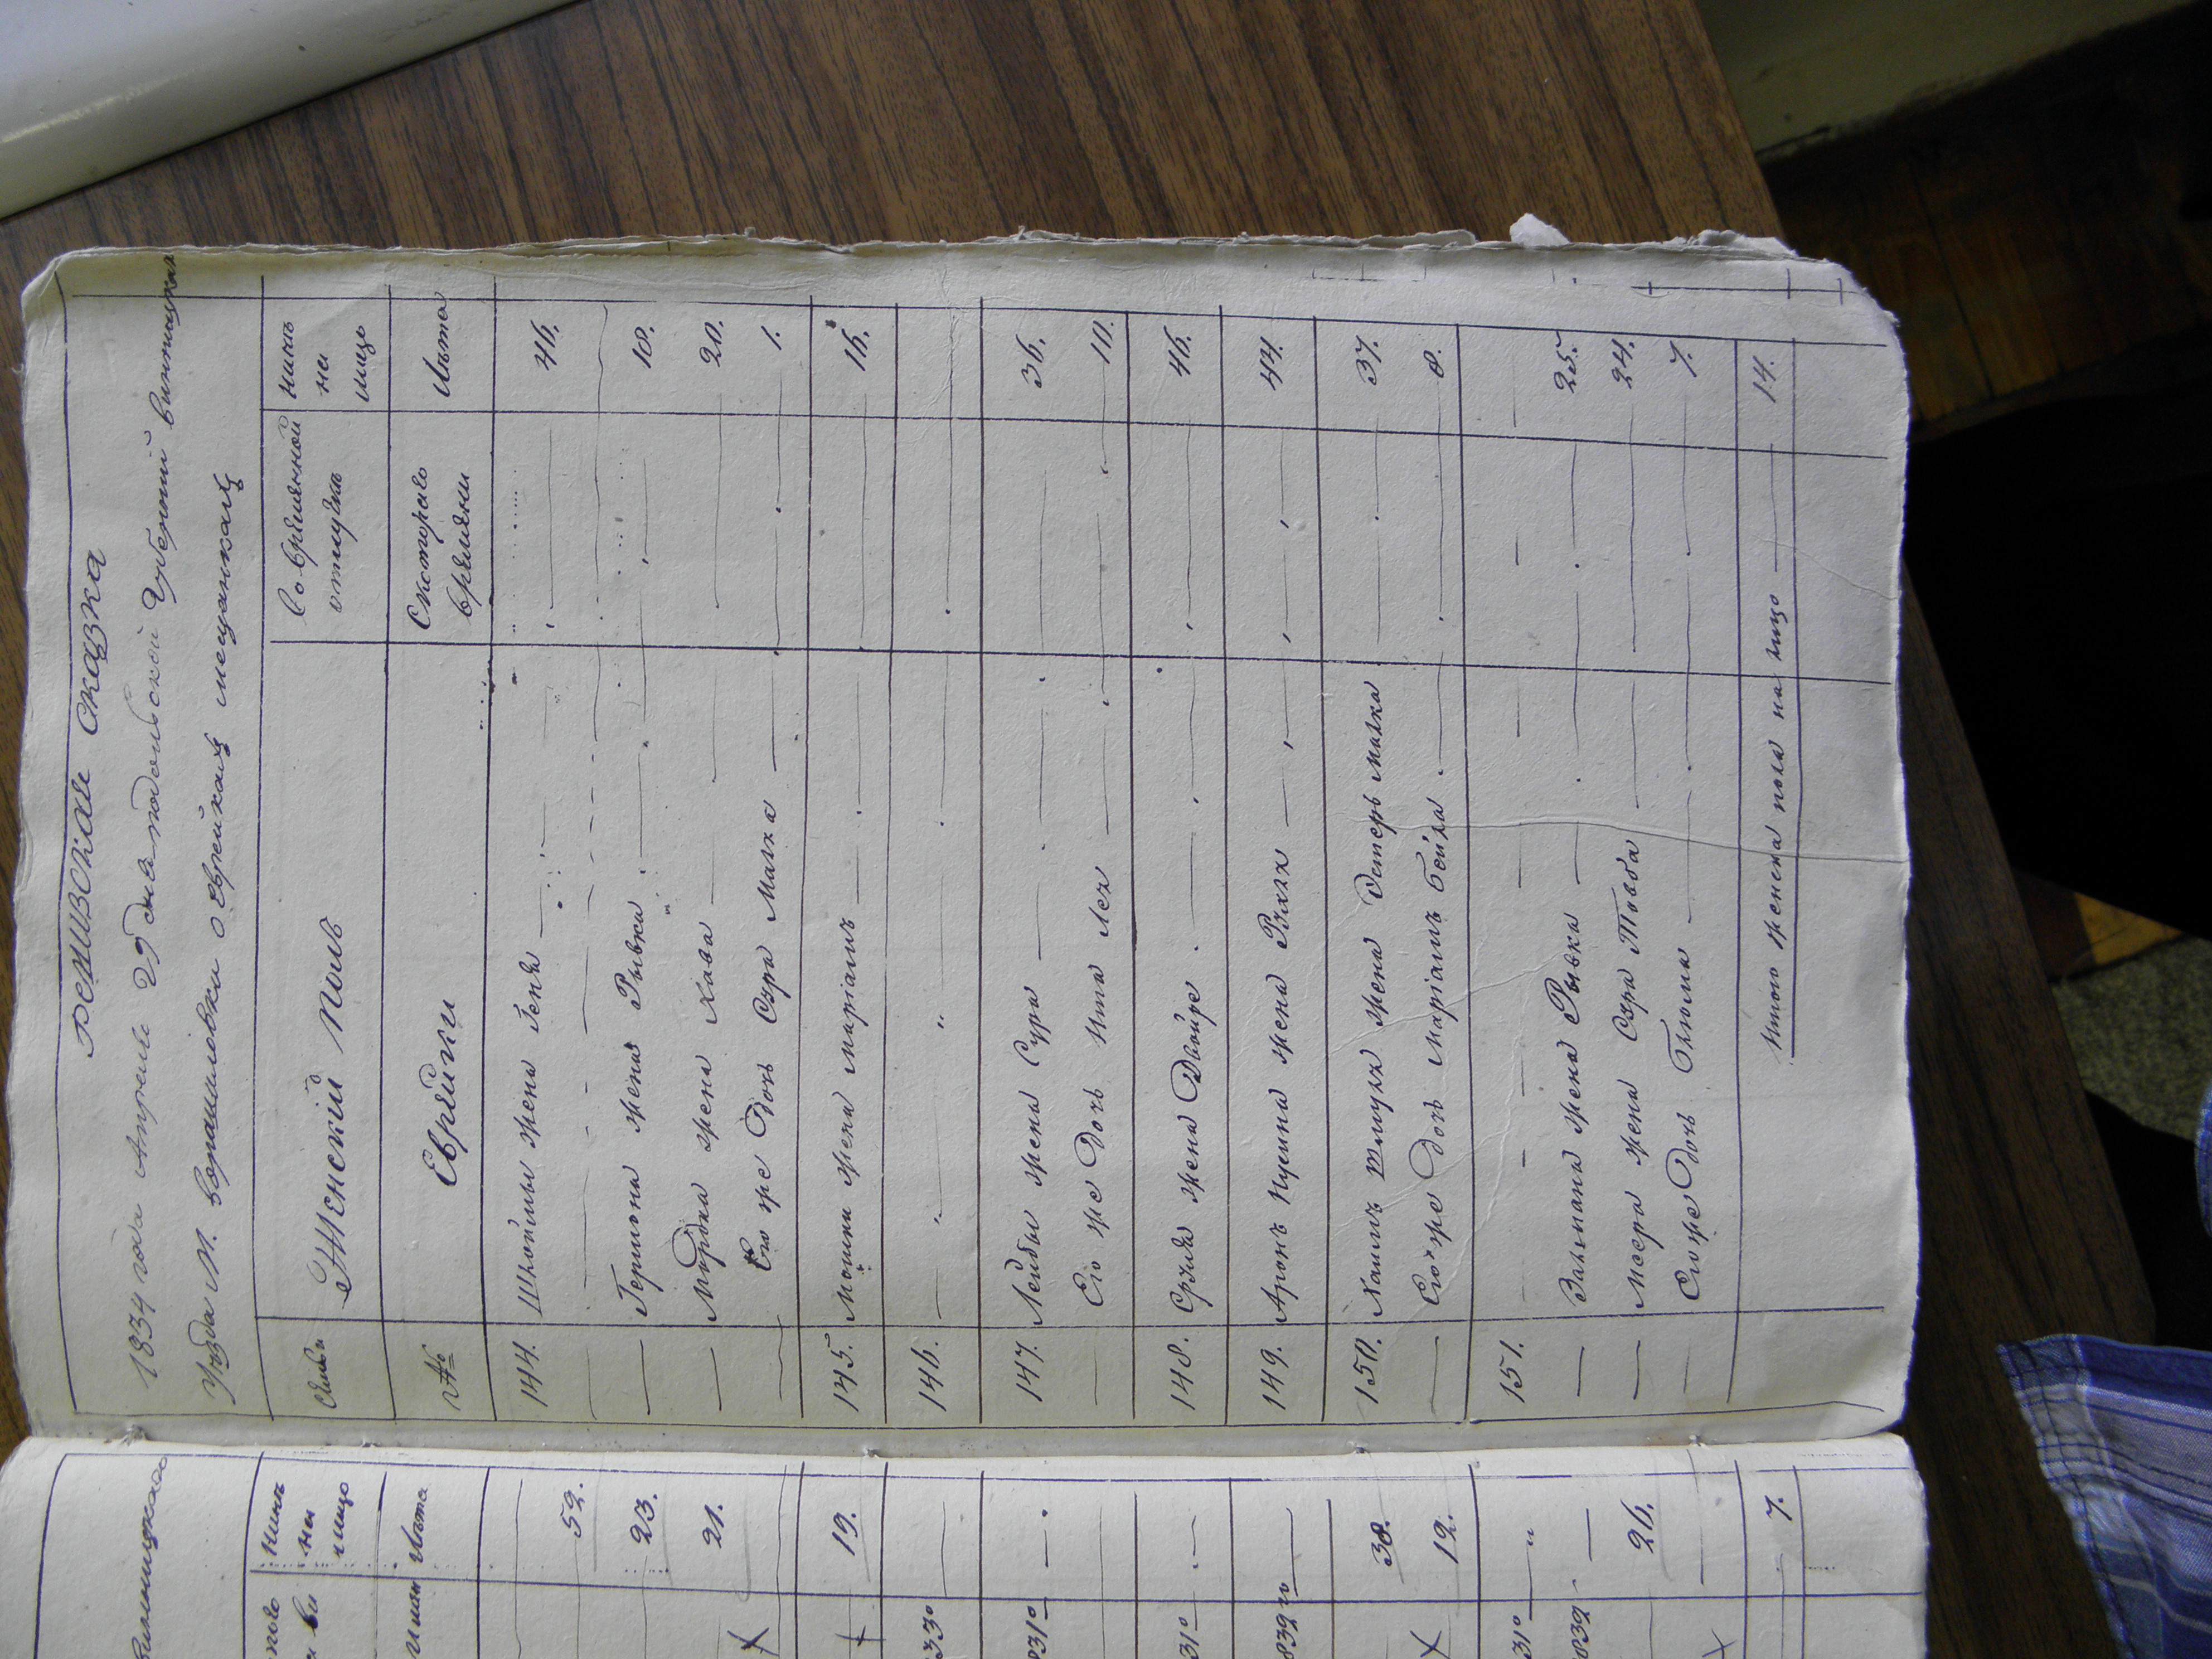 Ревизская Сказка
1834 года Апреля 29 дня подольской Губернии винницкая
Уезда М. ворошиловки о еврейкахъ мещанкахъ
Семьи
Женскій полъ
Во временной
отлучкѣ
нынѣ
на
лицо
№
Еврейки
Скоторого
времени
Лѣта
144. Шлоймы жена Геня 46.
Гершона жена Рывка 18.
Мордка жена Хава 20.
Его же Дочь Сура Малка 1.
145. Мошки жена Маріамъ 16.
146.
147. Лейбы жена Сура 36.
Его же Дочь Ита Лея 10.
148. Сруля жена Двойре 46.
149. Аронъ Нусина жена Рухля 44.
150. Хаимъ Шмуля жена Эстеръ Малка 37.
Его же дочь Маріамъ Бейла 8.
151.
Залмана жена Рывка 25.
Меера жена Сура Товба 24.
Его же Дочь Блюма 7.
Итого женска пола на лицо 14.
винницкаго
нынѣ
на
лицо
Лѣта
52.
23.
21.
19.
38.
12.
26.
7.